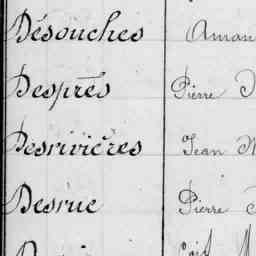 Désouches Aman
Desprès Pierre
Desrivières Jean
Desrue Pierre